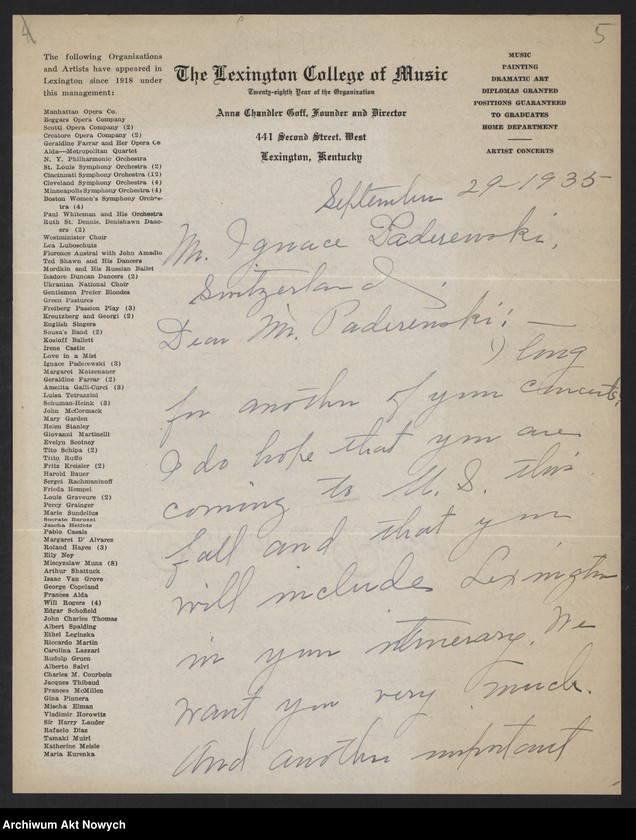 4
5
The following Organizations
and Artists have appeared in
Lexington since 1918 under
this management:
Manhattan Opera Co.
Beggars Opera Company
Scotti Opera Company (2)
Creatore Opera Company (2)
Geraldine Farrar and Her Opera Co
Alda—Metropolitan Quartet
N. Y. Philharmonic Orchestra
St. Louis Symphony Orchestra (2)
Cincinnati Symphony Orchestra (12)
Cleveland Symphony Orchestra (4)
Minneapolis Symphony Orchestra (4)
Boston Women's Symphony Orches-
tra (4)
Paul Whiteman and His Orchestra
Ruth St. Dennis, Denishawn Danc-
ers (2)
Westminister Choir
Lea Luboschutz
Florence Austral with John Amadio
Ted Shawn and His Dancers
Mordkin and His Russian Ballet
Isadore Duncan Dancers (2)
Ukranian National Choir
Gentlemen Prefer Blondes
Green Pastures
Freiberg Passion Play (3)
Kreutzberg and Georgi (2)
English Singers
Sousa's Band (2)
Kosloff Ballett
Irene Castle
Love in a Mist
Ignace Paderewski (3)
Margaret Matzenauer
Geraldine Farrar (2)
Amelita Galli-Curci (3)
Luisa Tetrazzini
Schuman-Heink (3)
John McCormack
Mary Garden
Helen Stanley
Giovanni Martinelli
Evelyn Scotney
Tito Schipa (2)
Titto Ruffo
Fritz Kreisler (2)
Harold Bauer
Sergei Rachmaninoff
Frieda Hempel
Louis Graveure (2)
Percy Grainger
Marie Sundelius
Socrate Barozzi
Jascha Heifetz
Pablo Casals
Margaret D' Alvares
Roland Hayes (3)
Elly Ney
Mieczyslaw Munz (8)
Arthur Shattuck
Isaac Van Grove
George Copeland
Frances Alda
Will Rogers (4)
Edgar Schofield
John Charles Thomas
Albert Spalding
Ethel Leginska
Riccardo Martin
Carolina Lazzari
Rudolp Gruen
Alberto Salvi
Charles M. Courboin
Jacques Thibaud
Frances McMillen
Gina Pinnera
Mischa Elman
Vladimir Horowitz
Sir Harry Lauder
Rafaelo Diaz
Tamaki Muirl
Katherine Meisle
Maria Kurenka
The Lexington College of Music
Twenty-eighth Year of the Organization
Anna Chandler Goff, Founder and Director
441 Second Street, West
Lexington, Kentucky
MUSIC
PAINTING
DRAMATIC ART
DIPLOMAS GRANTED
POSITIONS GUARANTEED
TO GRADUATES
HOME DEPARTMENT
ARTIST CONCERTS
September 29-1935
Mr. Ignace Paderewski,
Switzerland;
Dear Mr. Paderewski:—
I long
for another of your concerts,
I do hope that you are
coming to U. S. this
fall and that you
will include Lexington
in your itinerary. We
want you very much.
And another important
Archiwum Akt Nowych